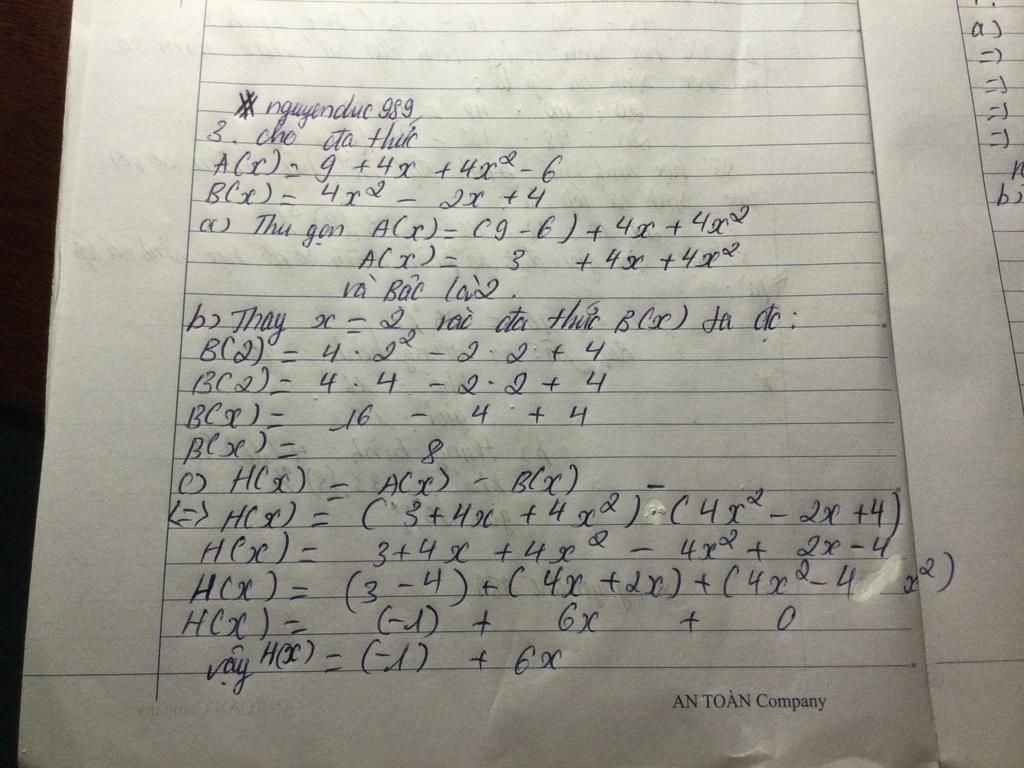 nguyenduc989
3. cho đa thức
A(x) = 9 + 4x + 4x² - 6
B(x) = 4x² - 2x + 4
a) Thu gọn A(x) = (9 - 6) + 4x + 4x²
A(x) = 3 + 4x + 4x²
và Bậc là 2.
b) Thay x = 2 vào đa thức B(x) ta đc :
B(2) = 4 . 2² - 2 . 2 + 4
B(2) = 4 . 4 - 2 . 2 + 4
B(x) = 16 - 4 + 4
B(x) = 8
c) H(x) = A(x) - B(x)
<=> H(x) = ( 3 + 4x + 4x² ) - ( 4x² - 2x + 4)
H(x) = 3 + 4x + 4x² - 4x² + 2x - 4
H(x) = (3 - 4) + ( 4x + 2x) + (4x² - 4 x²)
H(x) = (-1) + 6x + 0
vậy H(x) = (-1) + 6x
AN TOÀN Company
a)
=)
=)
=)
=)
b)